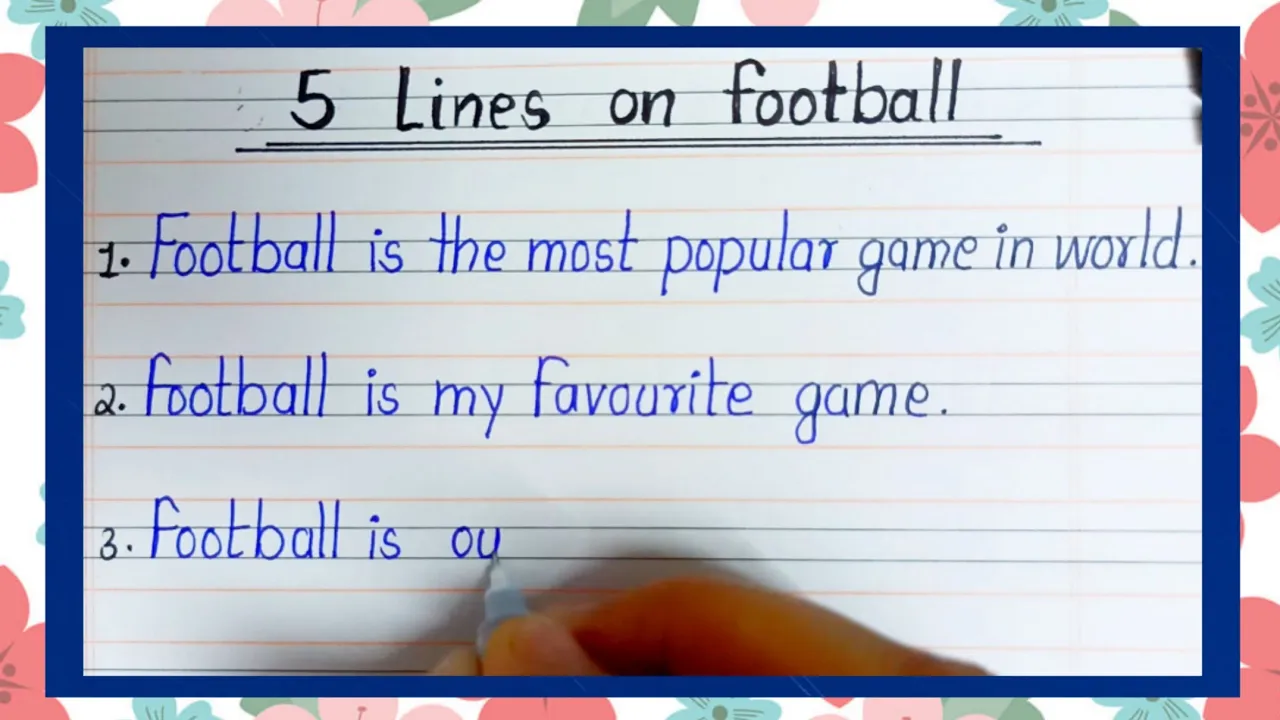 5 Lines on football
1. Football is the most popular game in world.
2. Football is my favourite game.
3. Football is ou